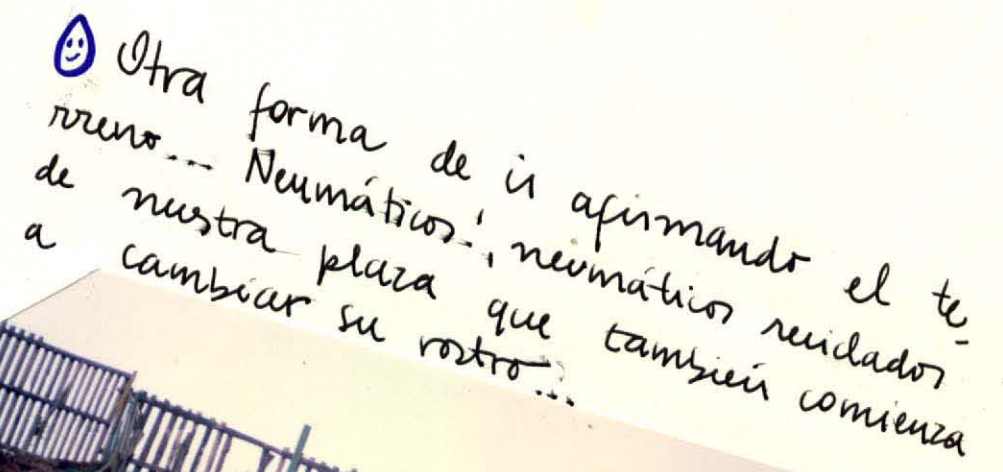 Otra forma de ir afirmando el te-
rreno... Neumáticos!, neumáticos reciclados
de nuestra plaza que también comienza
a cambiar su rostro...